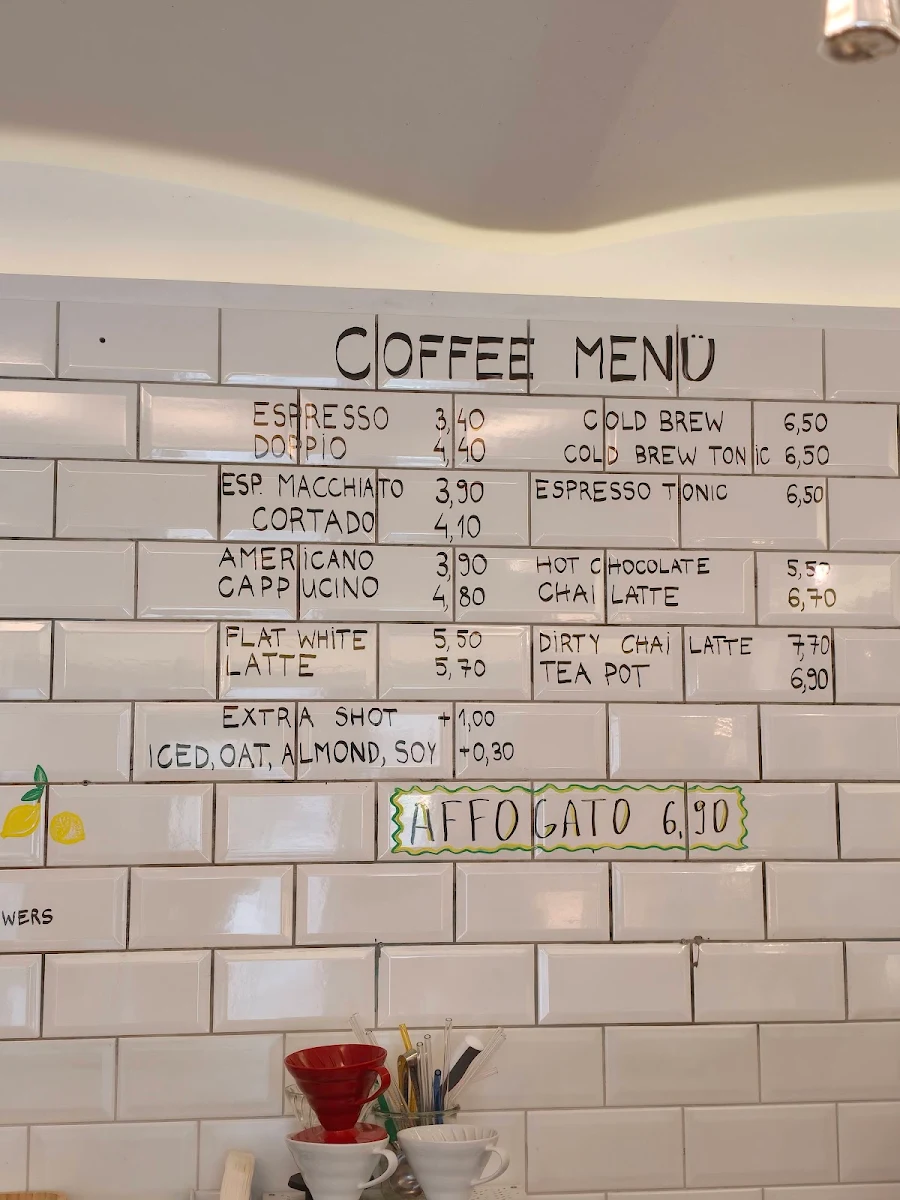 COFFEE MENÜ
ESPRESSO 3,40
DOPPIO 4,40
ESP. MACCHIATO 3,90
CORTADO 4,10
AMERICANO 3,90
CAPPUCINO 4,80
FLAT WHITE 5,50
LATTE 5,70
EXTRA SHOT +1,00
ICED, OAT, ALMOND, SOY +0,30
COLD BREW 6,50
COLD BREW TONIC 6,50
ESPRESSO TONIC 6,50
HOT CHOCOLATE
CHAI LATTE 6,70
DIRTY CHAI LATTE 7,70
TEA POT 6,90
AFFOGATO 6,90
WERS